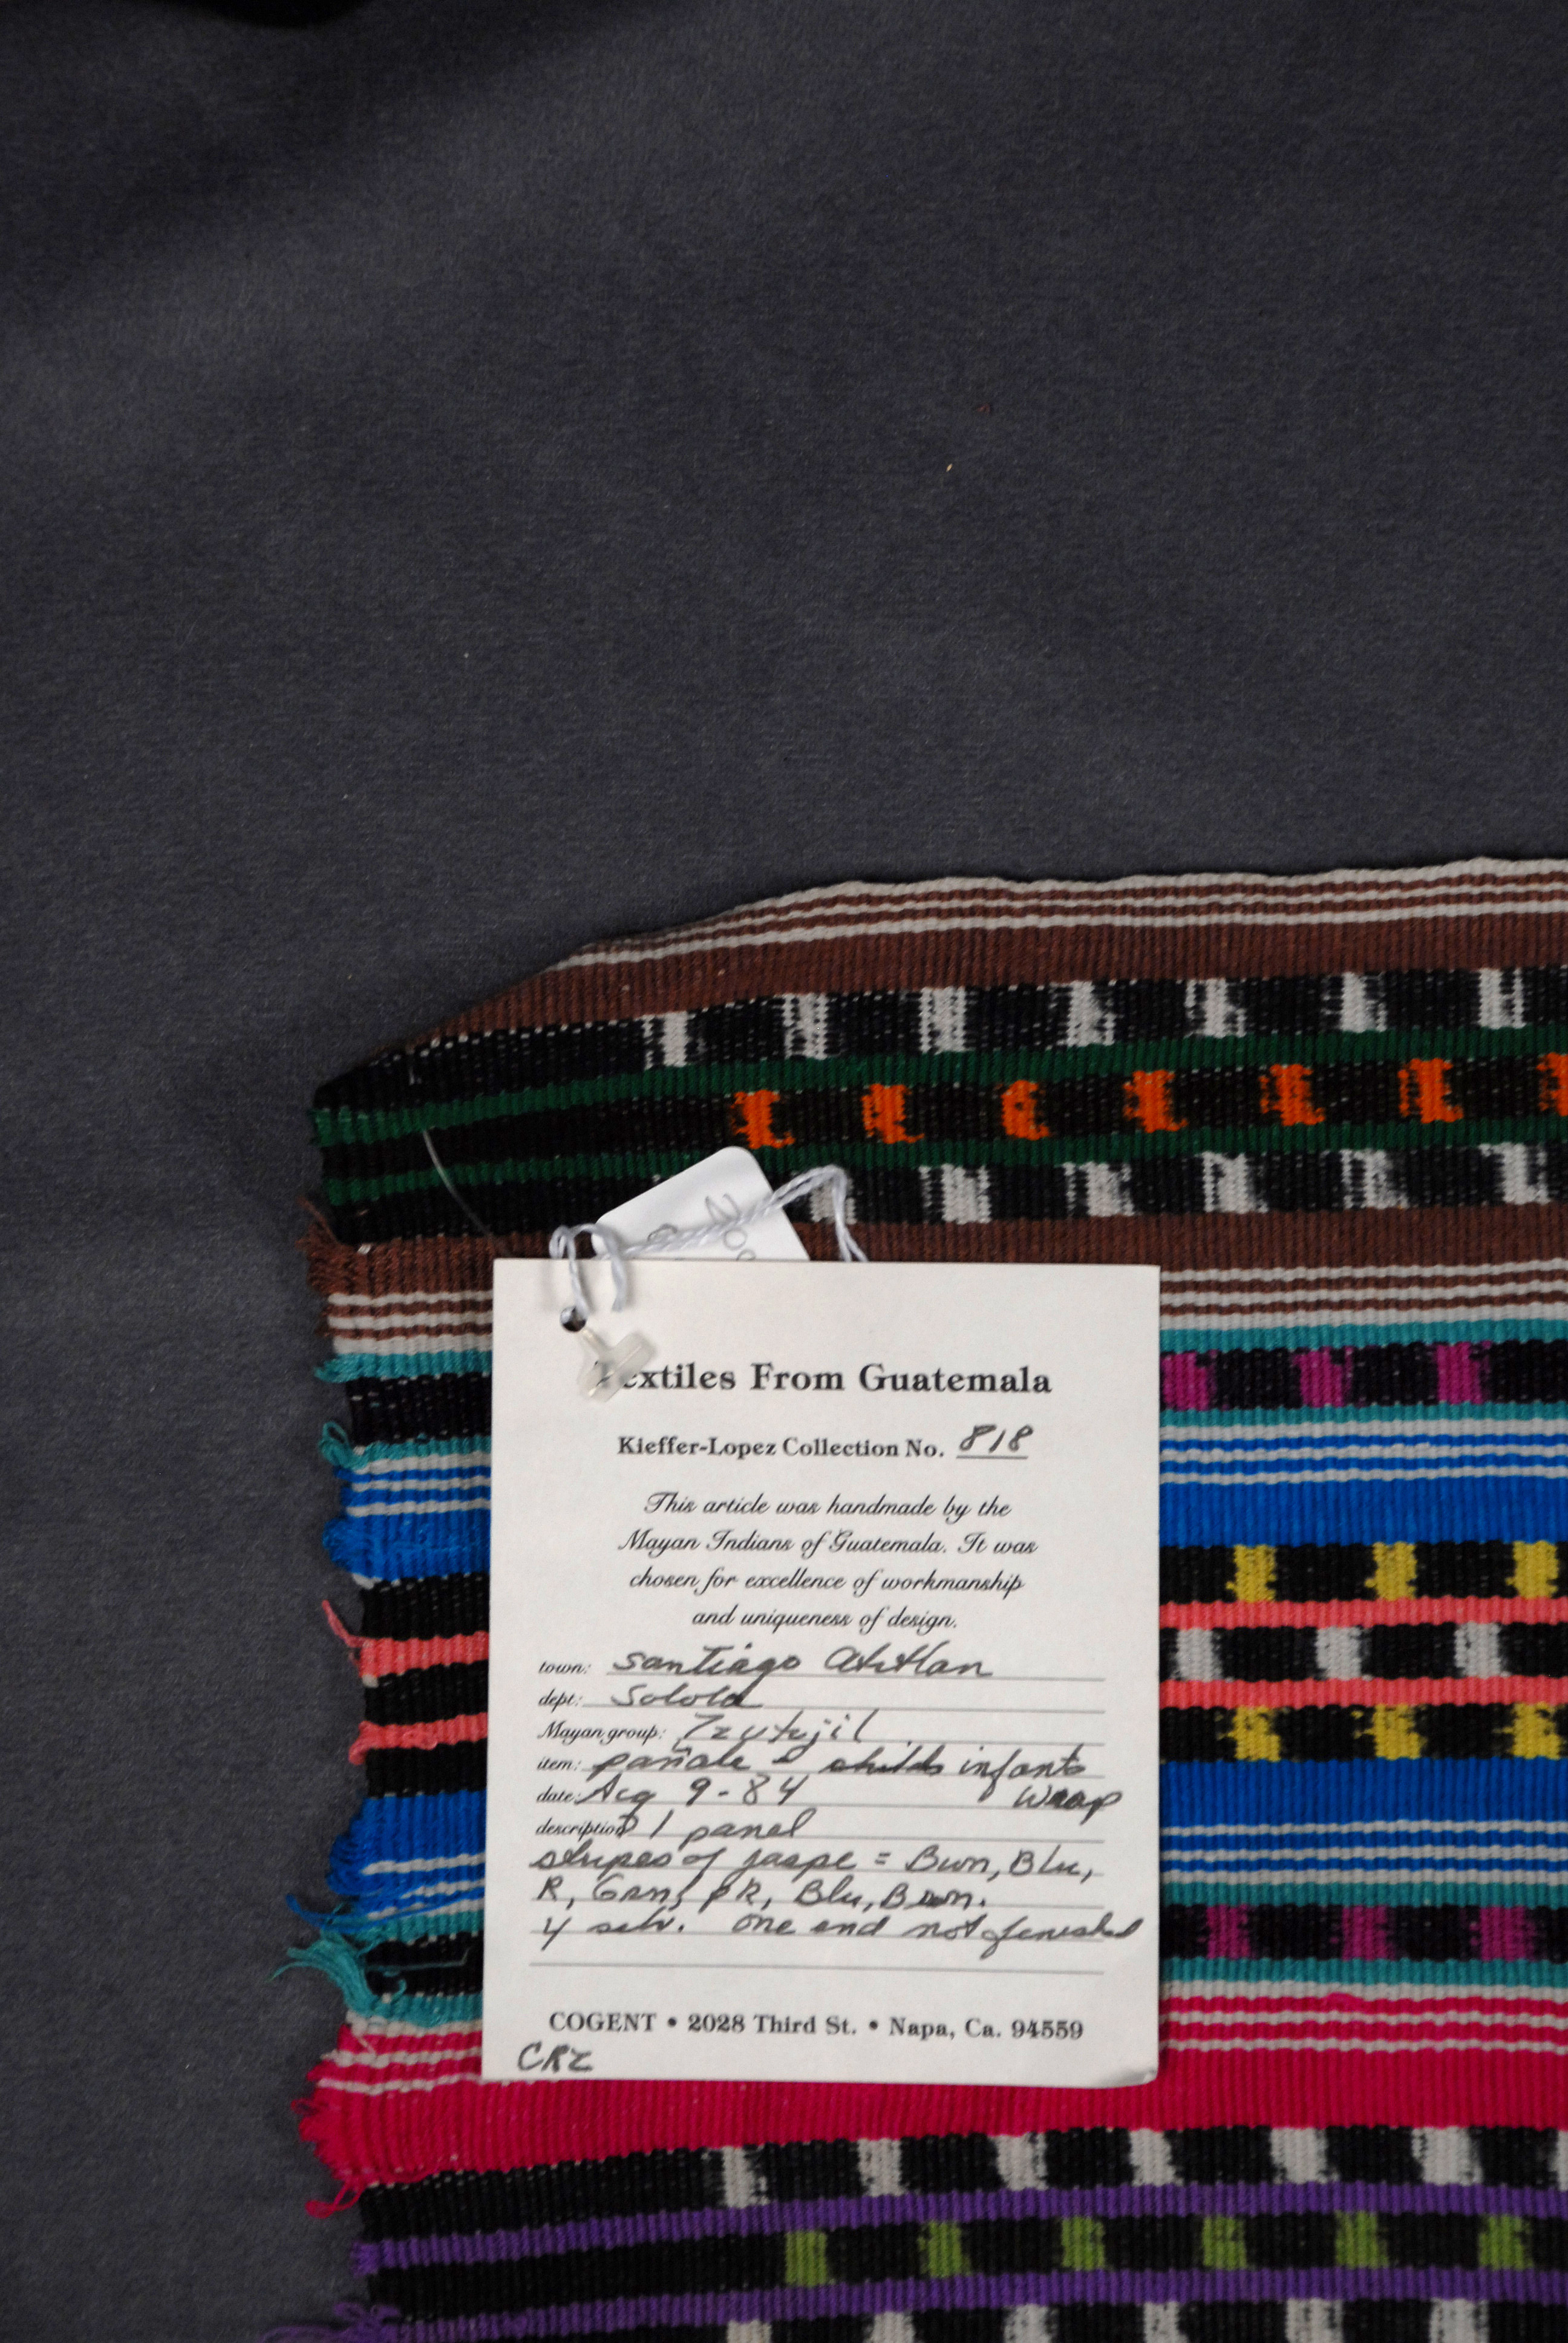 Textiles From Guatemala
Kieffer-Lopez Collection No. 818
This article was handmade by the
Mayan Indians of Guatemala. It was
chosen for excellence of workmanship
and uniqueness of design.
town: Santiago Atitlan
dept: Solola
Mayan group: Tzutujil
item: pañale - childs infants
date: Acq 9-84 wrap
description 1 panel
stripes of jaspe = Bwn, Blu,
R, Grn, PR, Blu, Brwn.
4 selv. one end not finished
COGENT • 2028 Third St. • Napa, Ca. 94559